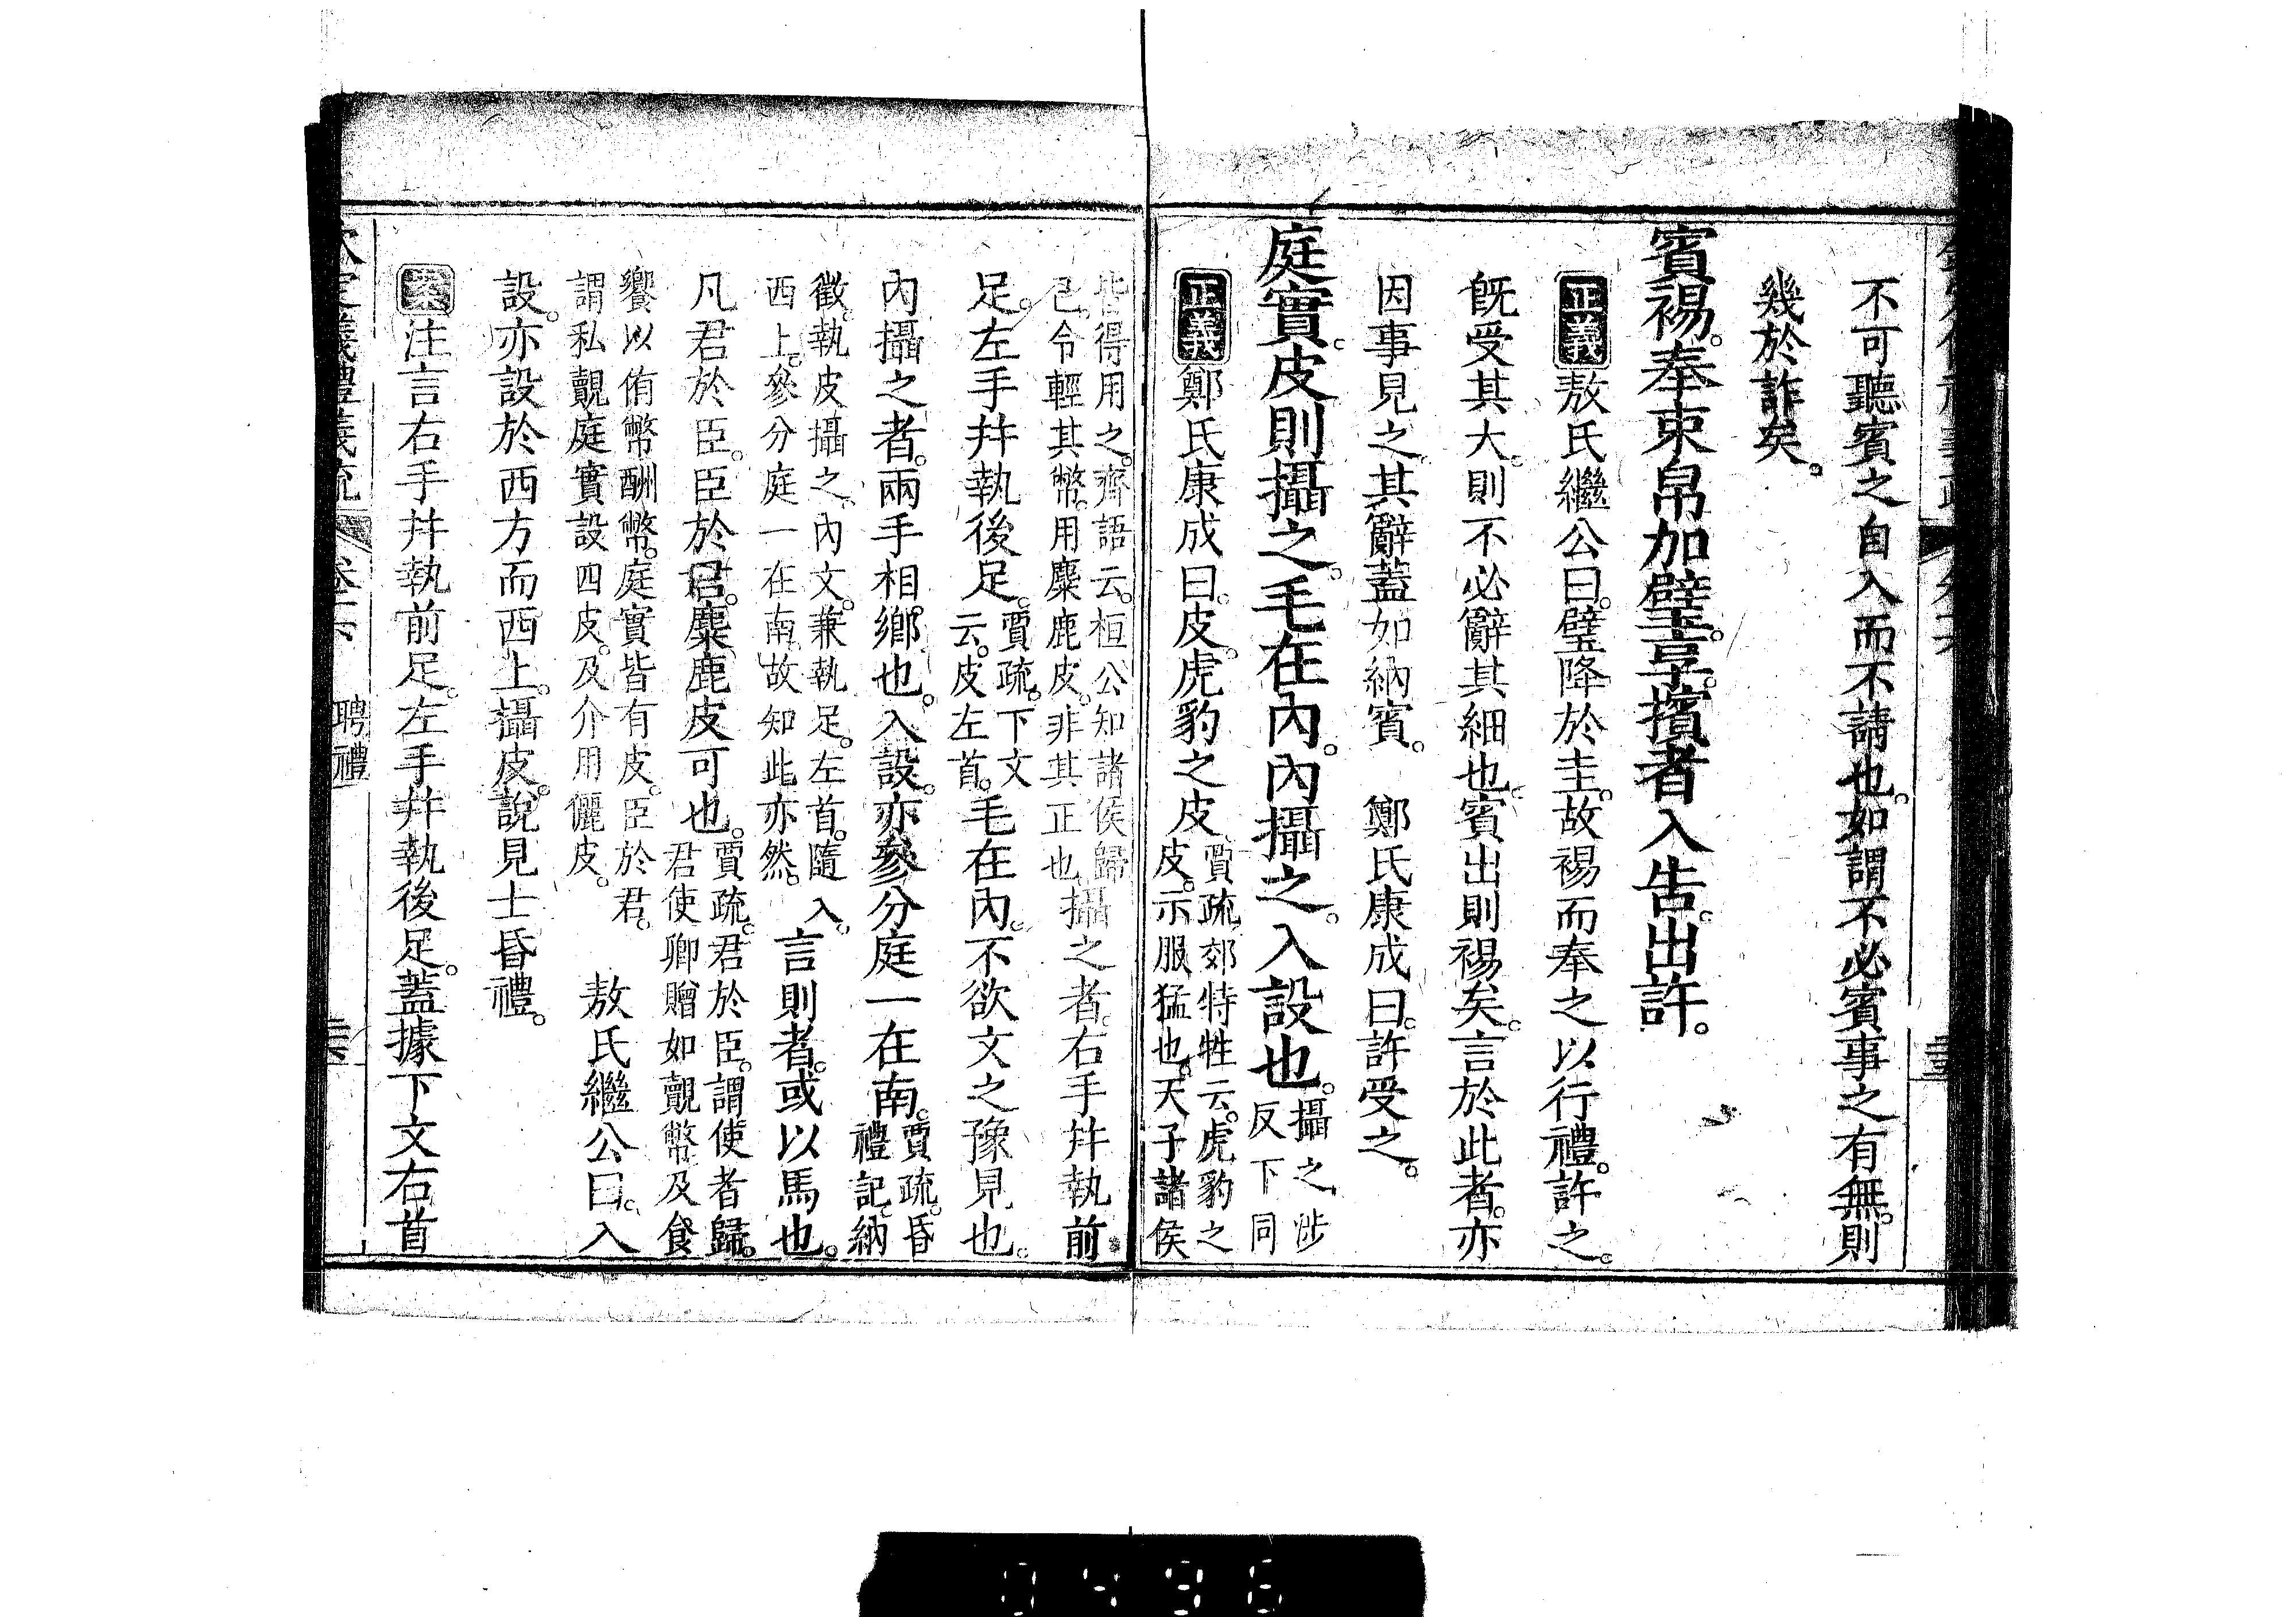 不可聽賓之自入而不請也。如謂不必賓事之有無。則
幾於詐矣。
賓裼。奉束帛加璧享。擯者入告。出許。
正義敖氏繼公曰。璧降於圭。故裼而奉之以行禮。許之。
既受其大。則不必辭其細也。賓出則裼矣。言於此者。亦
因事見之。其辭蓋如納賓。 鄭氏康成曰。許受之。
庭實。皮則攝之。毛在內。內攝之。入設也。攝之涉
反下同
正義鄭氏康成曰。皮。虎豹之皮。賈疏。郊特牲云。虎豹之
皮。示服猛也。天子諸侯
皆得用之。齊語云。桓公知諸侯歸
己。令輕其幣。用麋鹿皮。非其正也。攝之者。右手幷執前
足。左手幷執後足。賈疏。下文
云。皮左首。毛在內。不欲文之豫見也。
內攝之者。兩手相鄉也。入設。亦參分庭一在南。賈疏。昏
禮記。納
徵。執皮攝之。內文。兼執足。左首。隨入。
西上。參分庭一在南。故知此亦然。言則者。或以馬也。
凡君於臣。臣於君。麋鹿皮可也。賈疏。君於臣。謂使者歸。
君使卿贈如覿幣及食
饗以侑幣酬幣。庭實皆有皮。臣於君。
謂私覿庭實設四皮。及介用儷皮。 敖氏繼公曰。入
設。亦設於西方而西上。攝皮。說見士昏禮。
案注言右手幷執前足。左手幷執後足。蓋據下文右首
聘禮